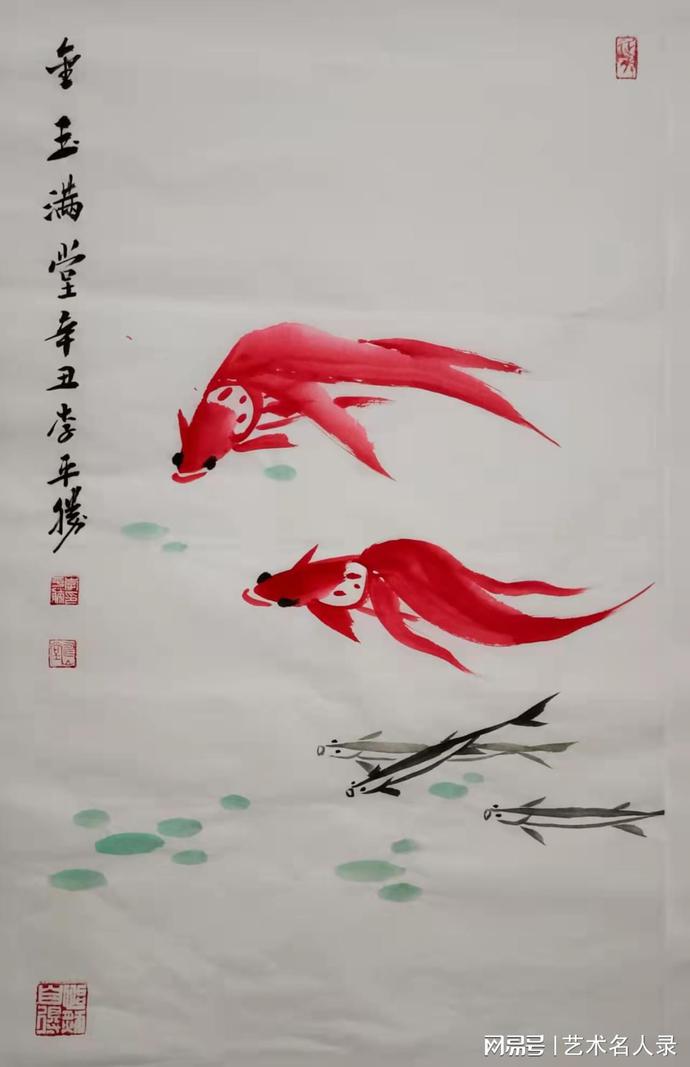 金玉满堂辛丑李平胜
网易号 | 艺术名人录